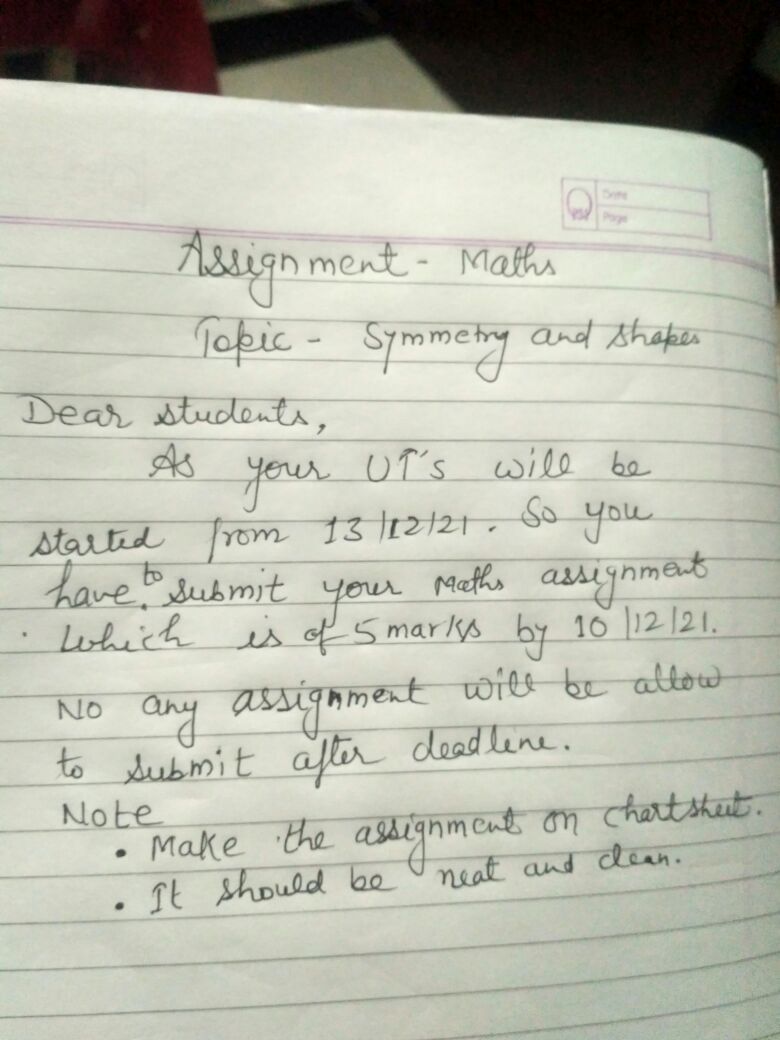 Date
Page
Assignment - Maths
Topic - Symmetry and shapes
Dear students,
As your UT's will be
started from 13/12/21. So you
have to submit your Maths assignment
which is of 5 marks by 10/12/21.
No any assignment will be allow
to submit after deadline.
Note
• Make the assignment on chartsheet.
• It should be neat and clean.